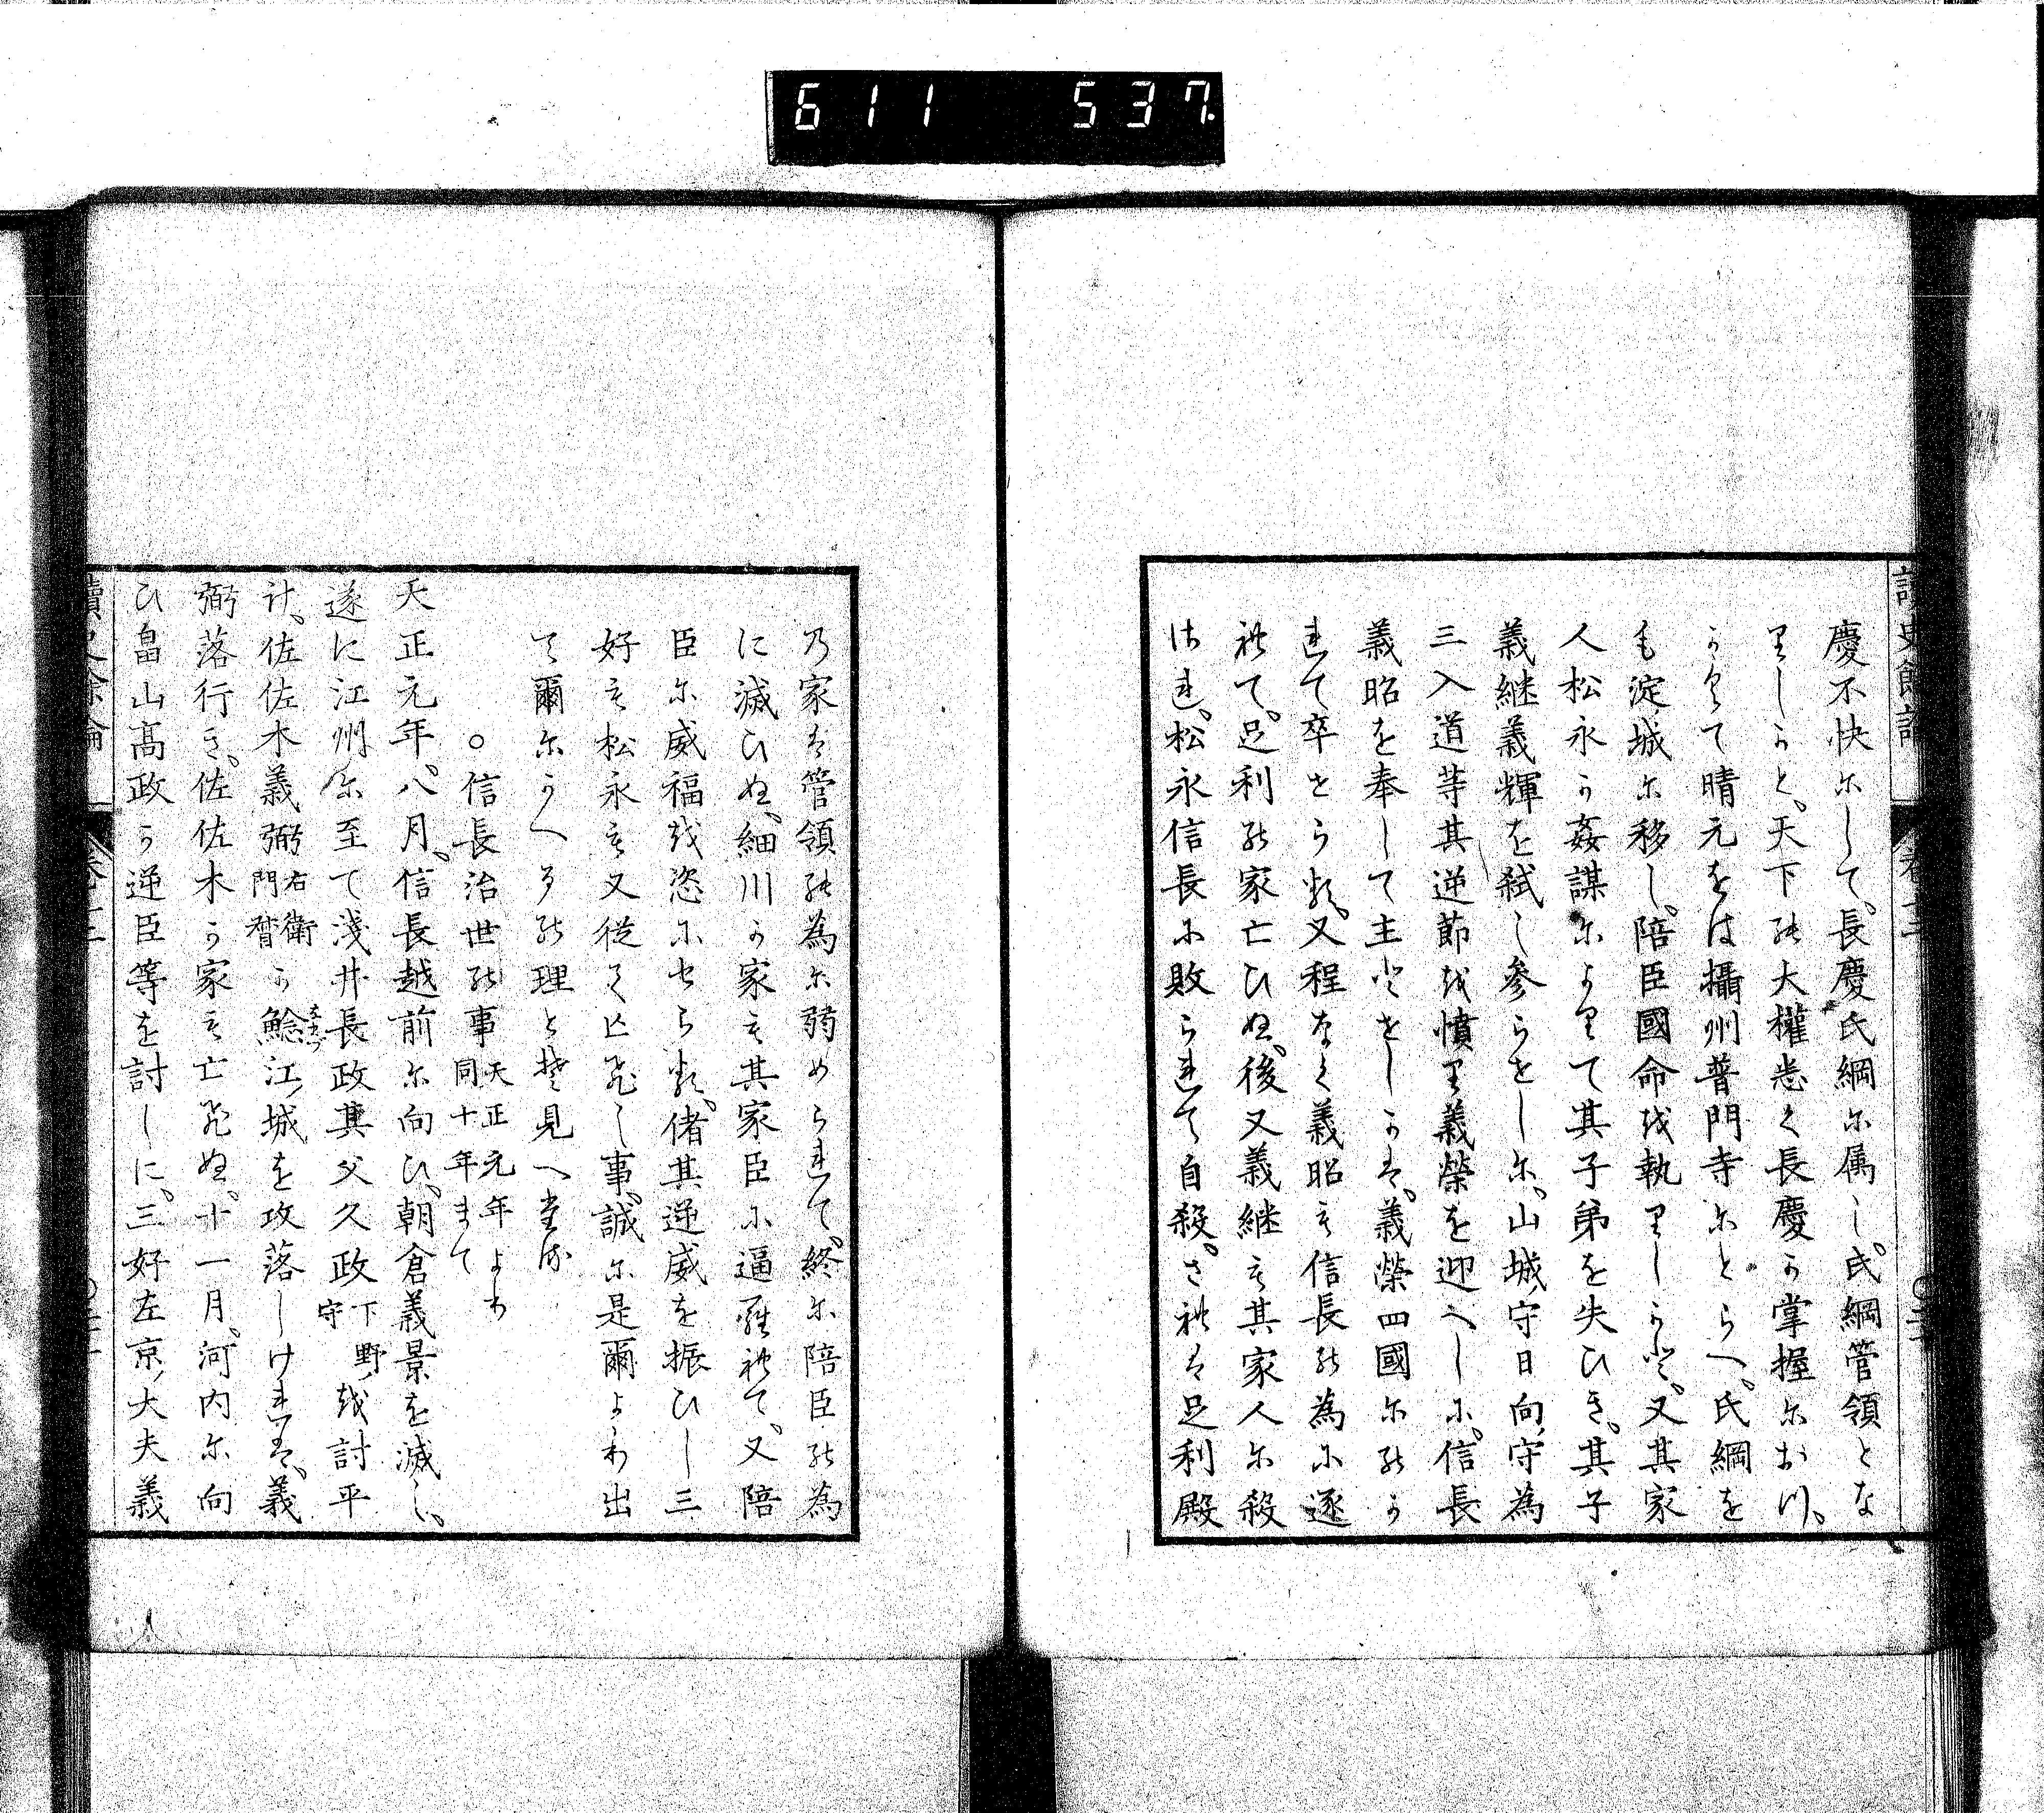 611 537
慶不快にして、長慶氏綱に属し、氏綱管領とな
りしかと、天下の大權悉く長慶か掌握におつ、
かくて晴元をは攝州普門寺にとらへ、氏綱を
も淀城に移し、陪臣國命を執りしかと、又其家
人松永か姦謀によりて其子弟を失ひき、其子
義継義輝を弑し參らせしに、山城守日向守為
三入道等其逆節を憤り義榮を迎へしに、信長
義昭を奉して主とせしかは、義榮四國にのか
れて卒せらる、又程なく義昭も信長の為に逐
れて、足利の家亡ひぬ、後又義継も其家人に殺
され、松永信長に敗られて自殺、されは足利殿
乃家は管領の為に弱められて、終に陪臣の為
に滅ひぬ、細川か家も其家臣に逼られて、又陪
臣に威福を恣にせらる、偖其逆威を振ひし三
好も松永も又従て亡ひし事、誠に是爾より出
て爾にかへるの理とそ見へたる
○信長治世の事 天正元年より
同十年まて
天正元年、八月、信長越前に向ひ、朝倉義景を滅し、
遂に江州に至て淺井長政其父久政 下野
守 を討平
計、佐佐木義弼 右衛
門督 か鯰江城を攻落しけれは、義
弼落行き、佐佐木か家も亡ひぬ、十一月、河内に向
ひ畠山高政か逆臣等を討しに、三好左京大夫義